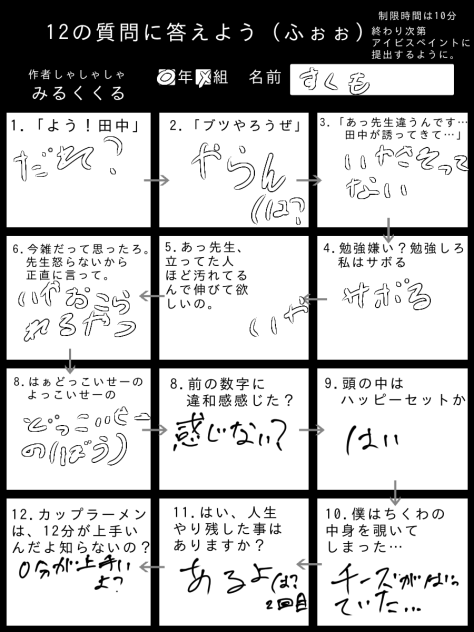 12の質問に答えよう（ふぉぉ）
制限時間は10分
終わり次第
アイビスペイントに
提出するように。
作者しゃしゃしゃ
みるくくる
〇年〆組 名前
すくも
1.「よう！田中」
だれて？
2.「ブツやろうぜ」
やらん
(は?
3.「あっ先生違うんです…
田中が誘ってきて…」
いやさそって
ない
4.勉強嫌い？勉強しろ
私はサボる
サボる
5.あっ先生、
立ってた人
ほど汚れてる
んで伸びて欲
しいの。
いや
6.今雑だって思ったろ。
先生怒らないから
正直に言って。
いやおこら
れるやつ
8.はぁどっこいせーの
よっこいせーの
どっこいせー
のぼう)
8.前の数字に
違和感感じた？
感じない？
9.頭の中は
ハッピーセットか
はい
10.僕はちくわの
中身を覗いて
しまった…
チーズがはいっ
ていた…
11.はい、人生
やり残した事は
ありますか？
あるよは?
2回目
12.カップラーメン
は、12分が上手い
んだよ知らないの？
0分が上手い
よ?